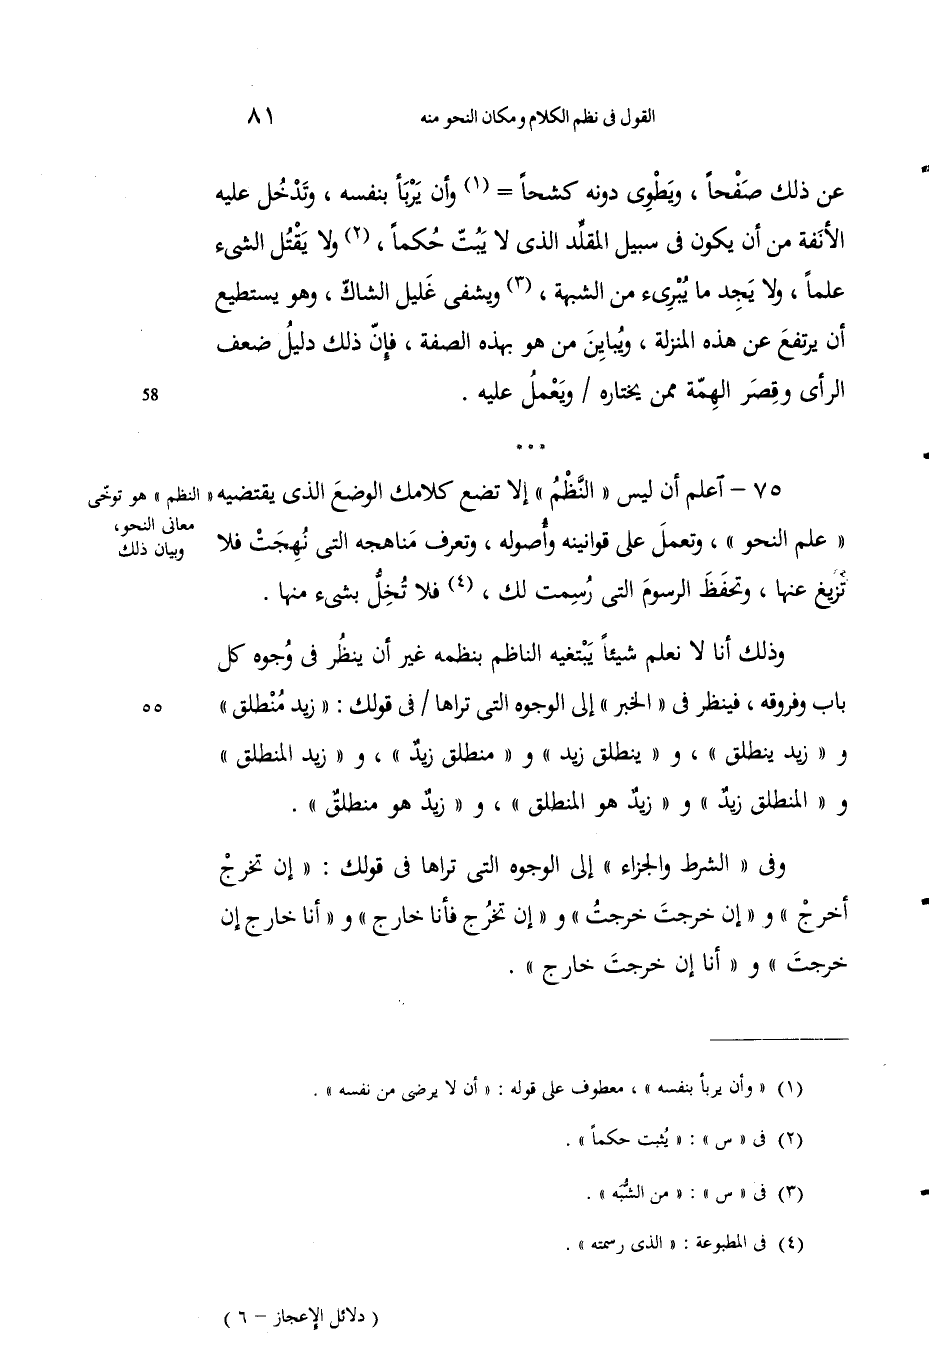 القول فى نظم الكلام ومكان النحو منه ٨١
عن ذلك صَفْحاً ، ويَطْوِى دونه كشحاً = (١) وأن يَرْبَأ بنفسه ، وتَدْخُل عليه
الأنَفة من أن يكون فى سبيل المقلِّد الذى لا يَبُتّ حُكماً ، (٢) ولا يَقْتُل الشىء
علماً ، ولا يَجِد ما يُبْرِىء من الشبهة ، (٣) ويشفى غَليل الشاكّ ، وهو يستطيع
أن يرتفعَ عن هذه المنزلة ، ويُباينَ من هو بهذه الصفة ، فإنّ ذلك دليلُ ضعف
الرأى وقِصَر الهِمّة ممن يختاره / ويَعْملُ عليه .
58
***
٧٥ - آعلم أن ليس « النَّظْمُ » إلا تضع كلامك الوضعَ الذى يقتضيه
« علم النحو » ، وتعملَ على قوانينه وأُصوله ، وتعرف مَناهجه التى نُهِجَتْ فلا
تَزِيغ عنها ، وتحفَظَ الرسومَ التى رُسِمت لك ، (٤) فلا تُخِلُّ بشىء منها .
« النظم » هو توخّى
معانى النحو،
وبيان ذلك
وذلك أنا لا نعلم شيئاً يَبْتغيه الناظم بنظمه غير أن ينظُر فى وُجوه كل
باب وفروقه ، فينظر فى « الخبر » إلى الوجوه التى تراها / فى قولك : « زيد مُنْطلق »
٥٥
و « زيد ينطلق » ، و « ينطلق زيد » و « منطلق زيدٌ » ، و « زيد المنطلق »
و « المنطلق زيدٌ » و « زيدٌ هو المنطلق » ، و « زيدٌ هو منطلقٌ » .
وفى « الشرط والجزاء » إلى الوجوه التى تراها فى قولك : « إن تخرجْ
أخرجْ » و « إن خرجتَ خرجتُ » و « إن تخرُج فأنا خارج » و « أنا خارج إن
خرجتَ » و « أنا إن خرجتَ خارج » .
(١) « وأن يربأ بنفسه » ، معطوف على قوله : « أن لا يرضى من نفسه » .
(٢) فى « س » : « يُثبت حكماً » .
(٣) فى « س » : « من الشُّبَه » .
(٤) فى المطبوعة : « الذى رسمته » .
( دلائل الإعجاز - ٦ )